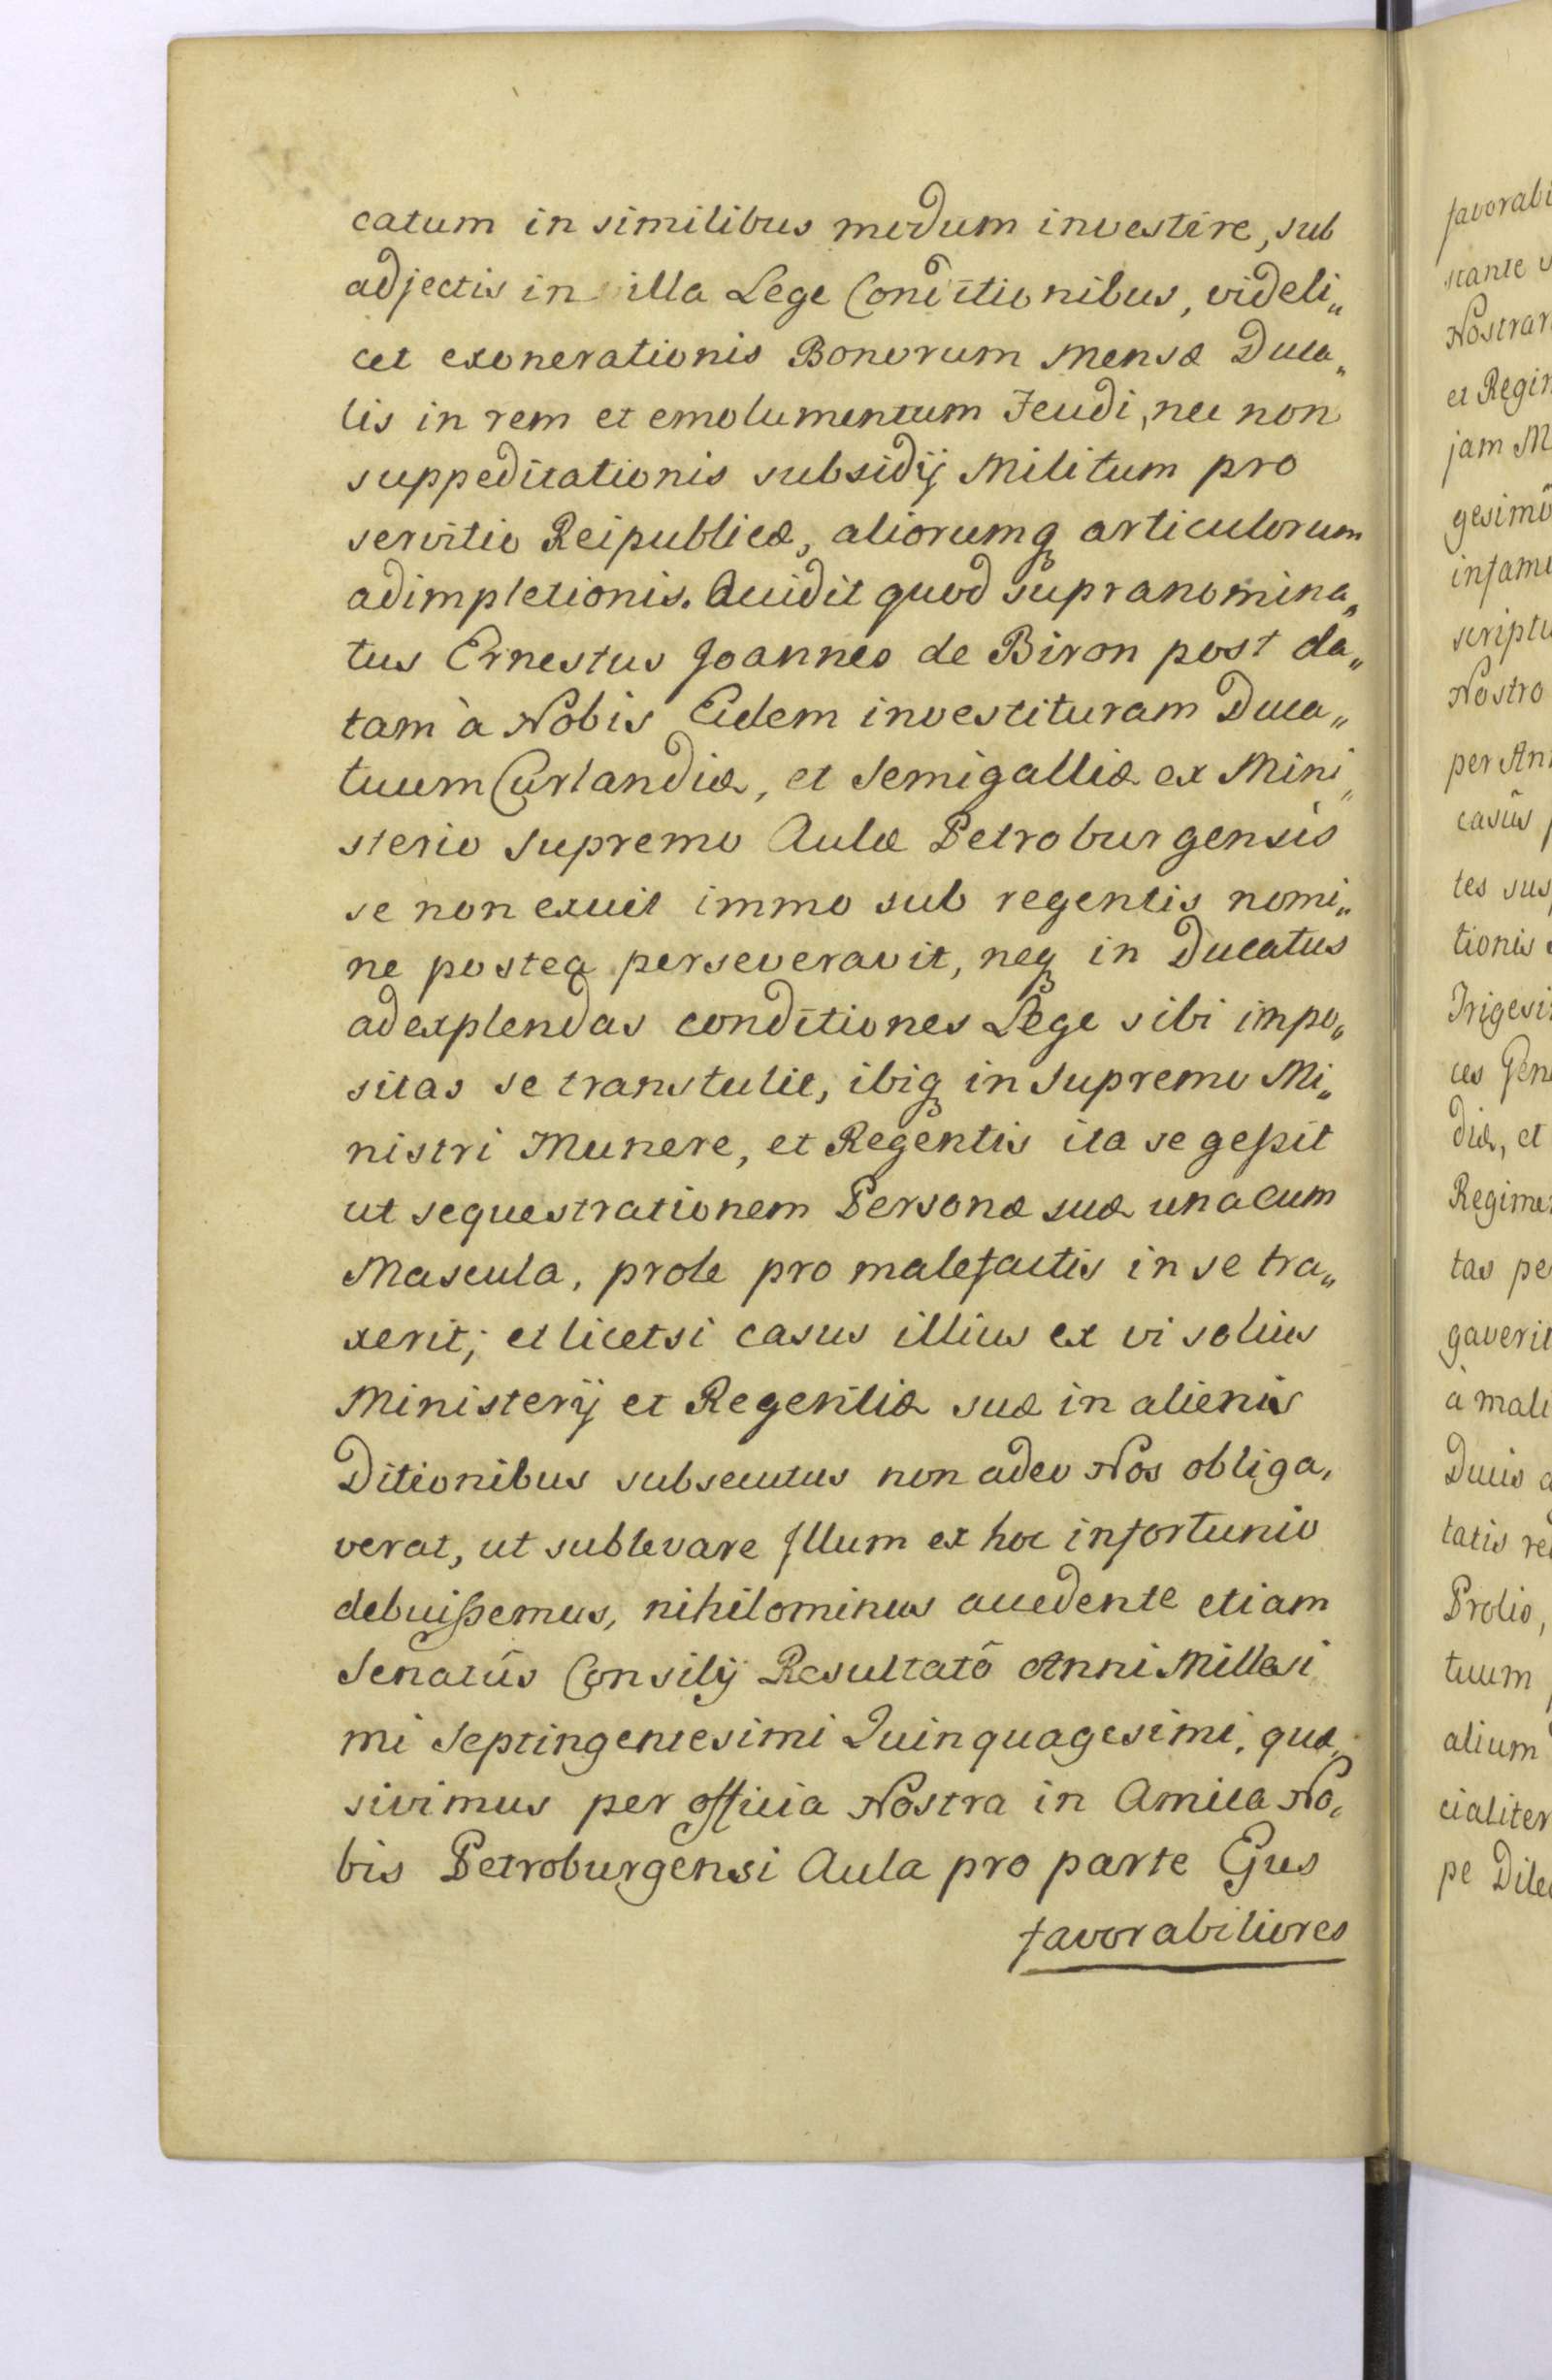 catum in similibus modum investire, sub
adjectis in illa Lege Conditionibus, videli„
cet exonerationis Bonorum Mensæ Duca„
lis in rem et emolumentum Feudi, nec non
suppeditationis subsidij Militum pro
servitio Reipublicæ, aliorumq articulorum
adimpletionis. Accidit quod supranomina„
tus Ernestus Joannes de Biron post da„
tam à Nobis Eidem investituram Duca„
tuum Curlandiæ, et Semigalliæ ex Mini„
sterio Supremo Aulæ Petroburgensis
se non exuit immo sub regentis nomi„
ne postea perseveravit, neq in Ducatus
ad explendas conditiones Lege sibi impo„
sitas se transtulit, ibiq in Supremo Mi„
nistri Munere, et Regentis ita se gessit
ut sequestrationem Personæ suæ una cum
Mascula, prole pro malefactis in se tra„
xerit; et licet si casus illius ex vi solius
Ministerij et Regentiæ suæ in alienis
Ditionibus subsecutus non adeo Nos obliga,
verat, ut sublevare Illum ex hoc infortunio
debuissemus, nihilominus accedente etiam
Senatûs Consilij Resultatô Anni Millesi
mi Septingentesimi Quinquagesimi, quæ„
sivimus per officia Nostra in Amica No„
bis Petroburgensi Aula pro parte Ejus
favorabiliores
favorabi
stante
Nostrar
et Regin
jam M
gesimô
infam
scriptu
Nostro
per An
casûs
tes sus
tionis
Trigesi
ces Gen
diæ, et
Regime
tas pe
gaverit
à mali
Ducis
tatis re
Prolis,
tuum
alium
cialiter
pe Dile